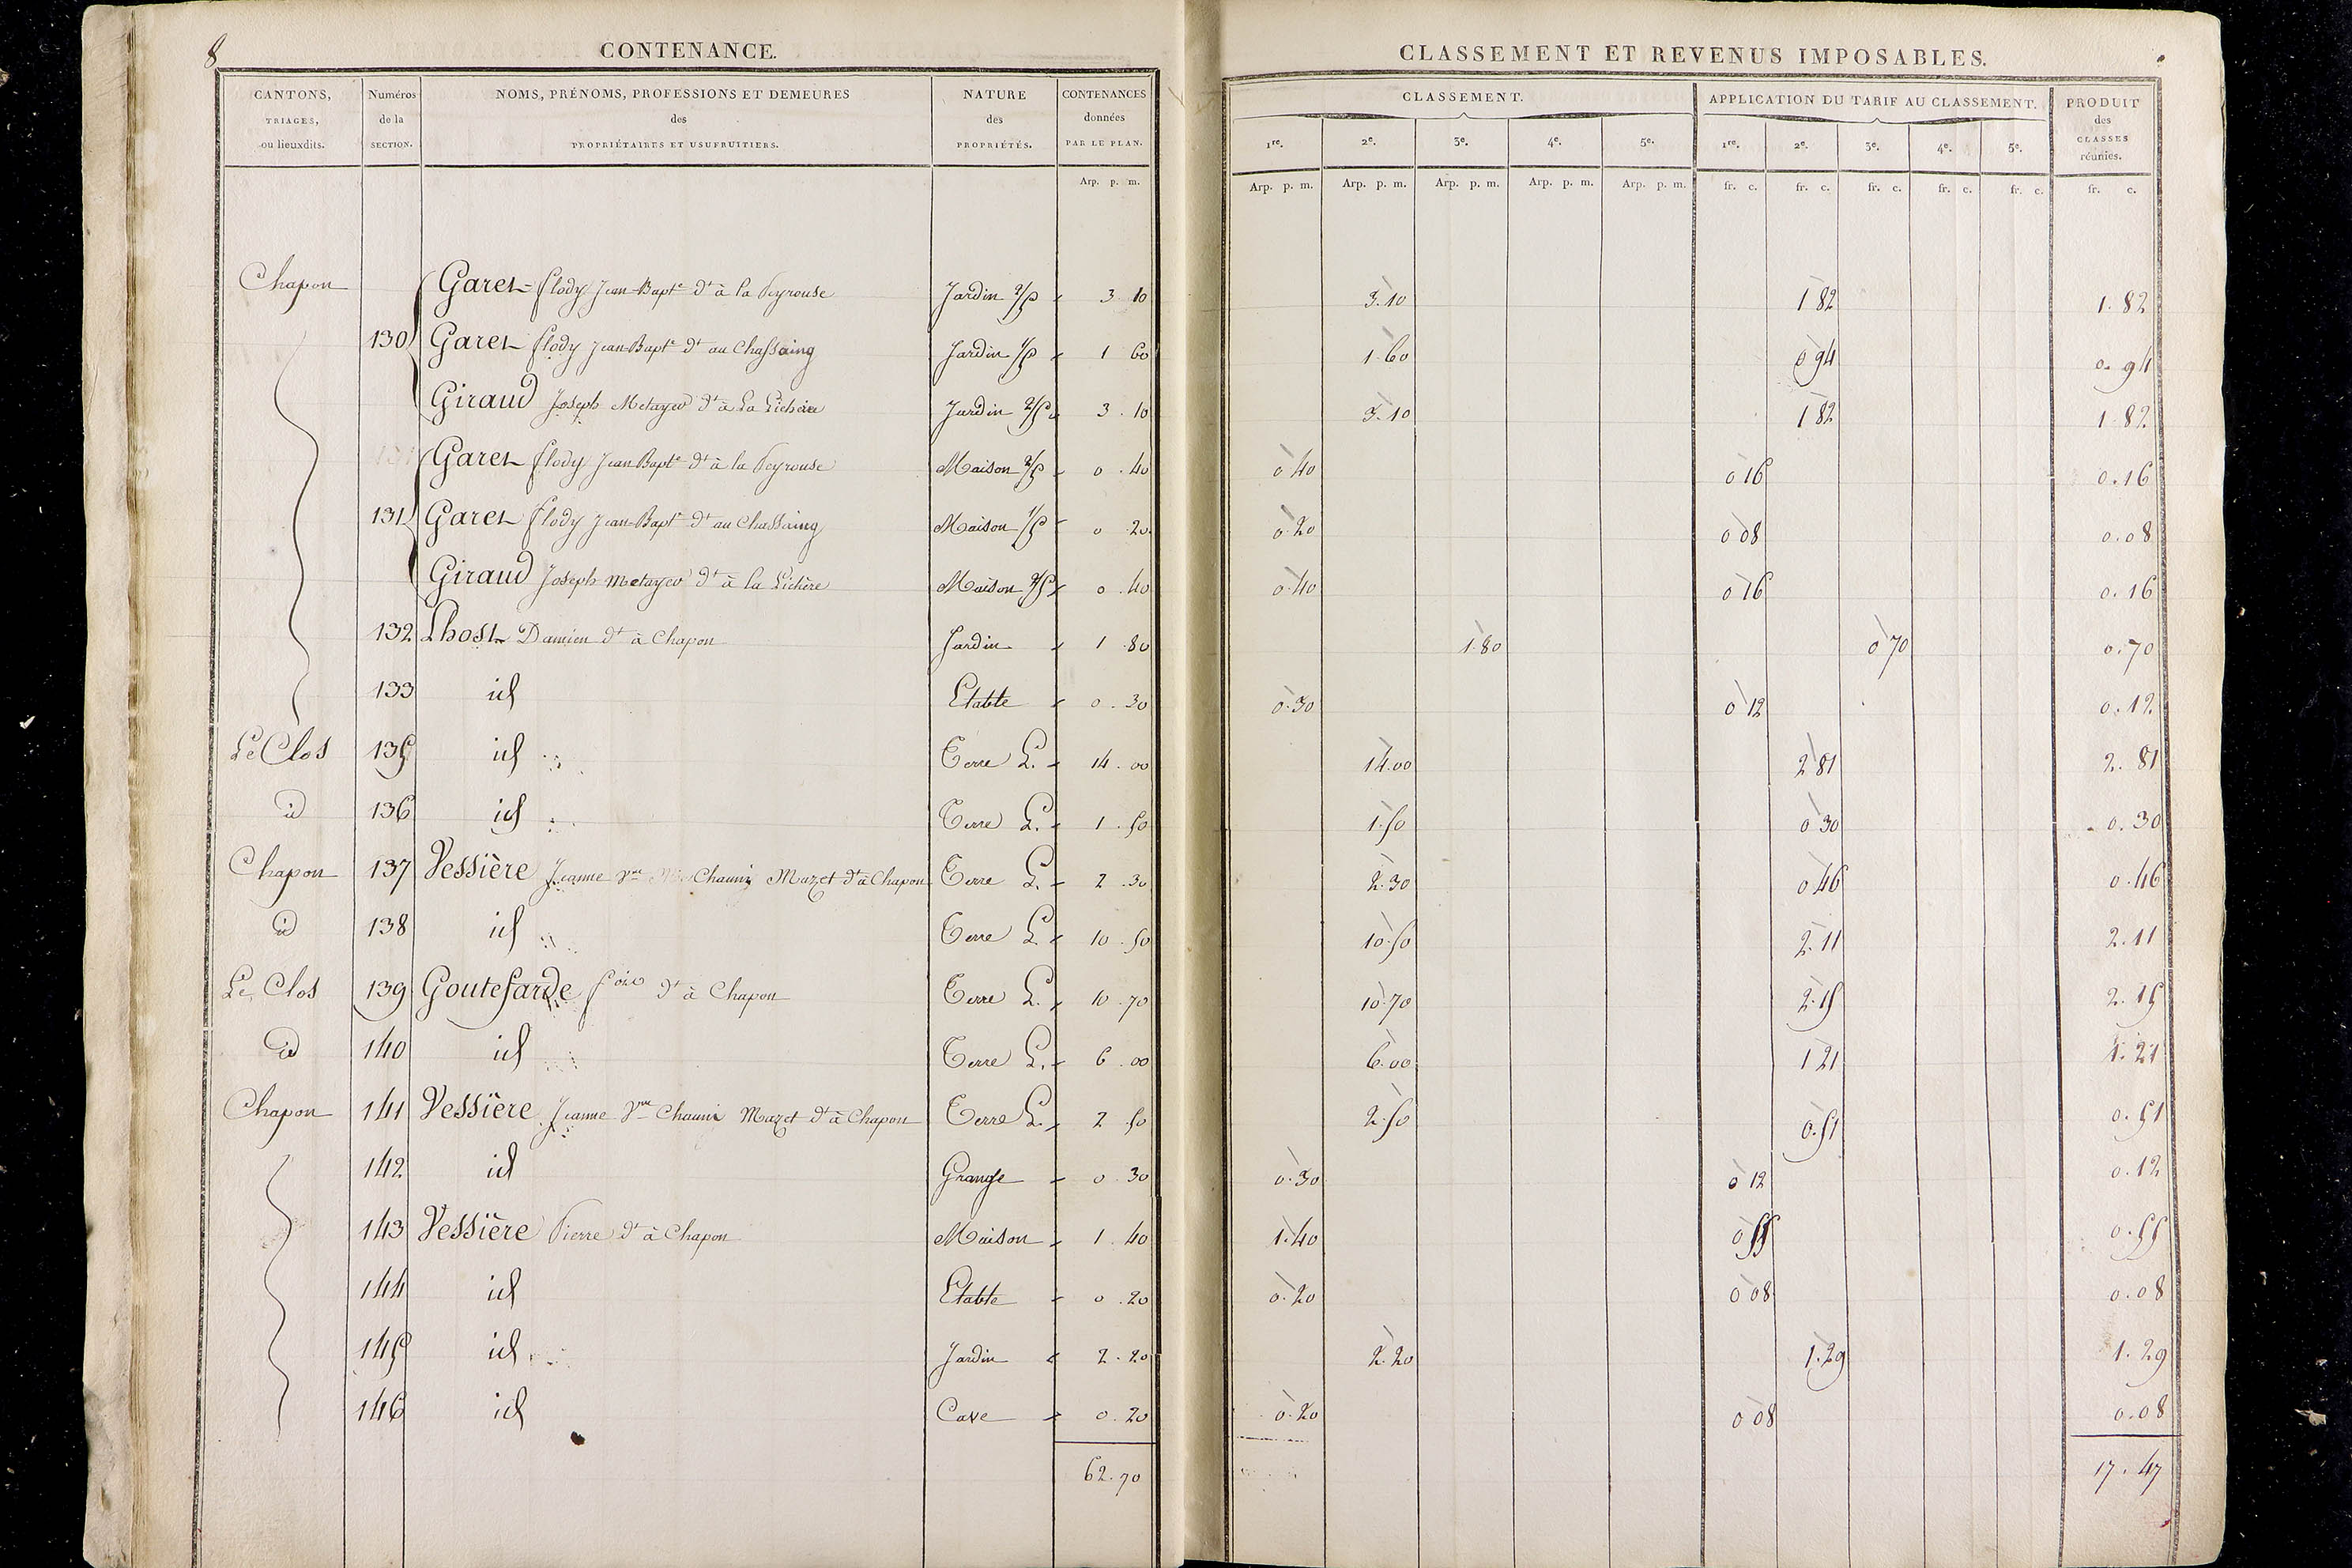 8
CONTENANCE.
CANTONS, TRIAGES, ou lieuxdits. | Numéros de la SECTION. | NOMS, PRÉNOMS, PROFESSIONS ET DEMEURES des PROPRIÉTAIRES ET USUFRUITIERS. | NATURE des PROPRIÉTÉS. | CONTENANCES données PAR LE PLAN.
Arp. p. m.
CLASSEMENT ET REVENUS IMPOSABLES.
CLASSEMENT. | APPLICATION DU TARIF AU CLASSEMENT. | PRODUIT des CLASSES réunies.
1re. 2e. 3e. 4e. 5e. | 1re. 2e. 3e. 4e. 5e.
Arp. p. m. Arp. p. m. Arp. p. m. Arp. p. m. Arp. p. m. | fr. c. fr. c. fr. c. fr. c. fr. c. | fr. c.
Chapon Garet flody Jean Bapte dt à la Peyrouse Jardin 2/5 3 10 3.10 1 82 1.82
130 Garet flody Jean Bapte dt au Chassaing Jardin 1/5 1 60 1.60 0 94 0.94
Giraud Joseph Metayer dt à La Lichère Jardin 2/5 3.10 3.10 1 82 1.82
Garet flody Jean Bapte dt à la Peyrouse Maison 2/5 0.40 0 40 0 16 0.16
131 Garet flody Jean Bapte dt au Chassaing Maison 1/5 0 20 0.20 0 08 0.08
Giraud Joseph Metayer dt à la Lichère Maison 2/5 0.40 0.40 0 16 0.16
132 Lhost Damien dt à Chapon Jardin 1 80 1.80 0 70 0.70
133 id Etable 0.30 0.30 0 12 0.12
Le Clos 135 id Terre L. 14.00 14.00 2 81 2.81
id 136 id Terre L. 1.50 1.50 0 30 0.30
Chapon 137 Vessière Jeanne Vve Chauni Mazet dt à Chapon Terre L. 2.30 2.30 0 46 0.46
id 138 id Terre L. 10.50 10.50 2.11 2.11
Le Clos 139 Goutefarde dt à Chapon Terre L. 10.70 10.70 2.15 2.15
id 140 id Terre L. 6.00 6.00 1 21 1.21
Chapon 141 Vessière Jeanne Vve Chauni Mazet dt à Chapon Terre L. 2 50 2.50 0.51 0.51
142 id Grange 0.30 0.30 0 12 0.12
143 Vessière Pierre dt à Chapon Maison 1.40 1.40 0 55 0.55
144 id Etable 0.20 0.20 0 08 0.08
145 id Jardin 2.20 2.20 1.29 1.29
146 id Cave 0.20 0.20 0 08 0.08
62.70 17.47